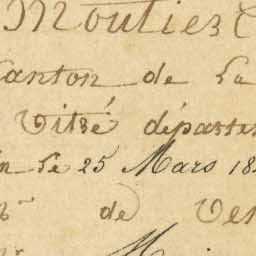 Moutiers
Canton de La
Vitré départem
le 25 Mars 18
de Ver